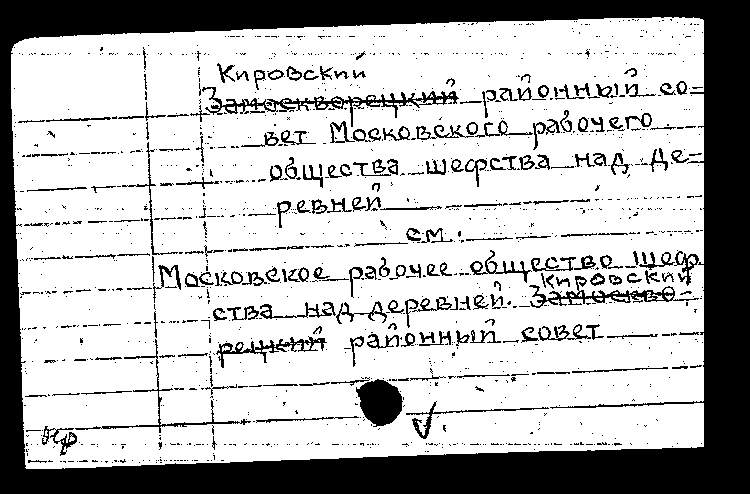 Кировский
Замоскворецкий районный со-
вет Московского рабочего
общества шефства над де-
ревней
см.
Московское рабочее общество шеф
Кировский
ства над деревней. Замоскво-
рецкий районный совет